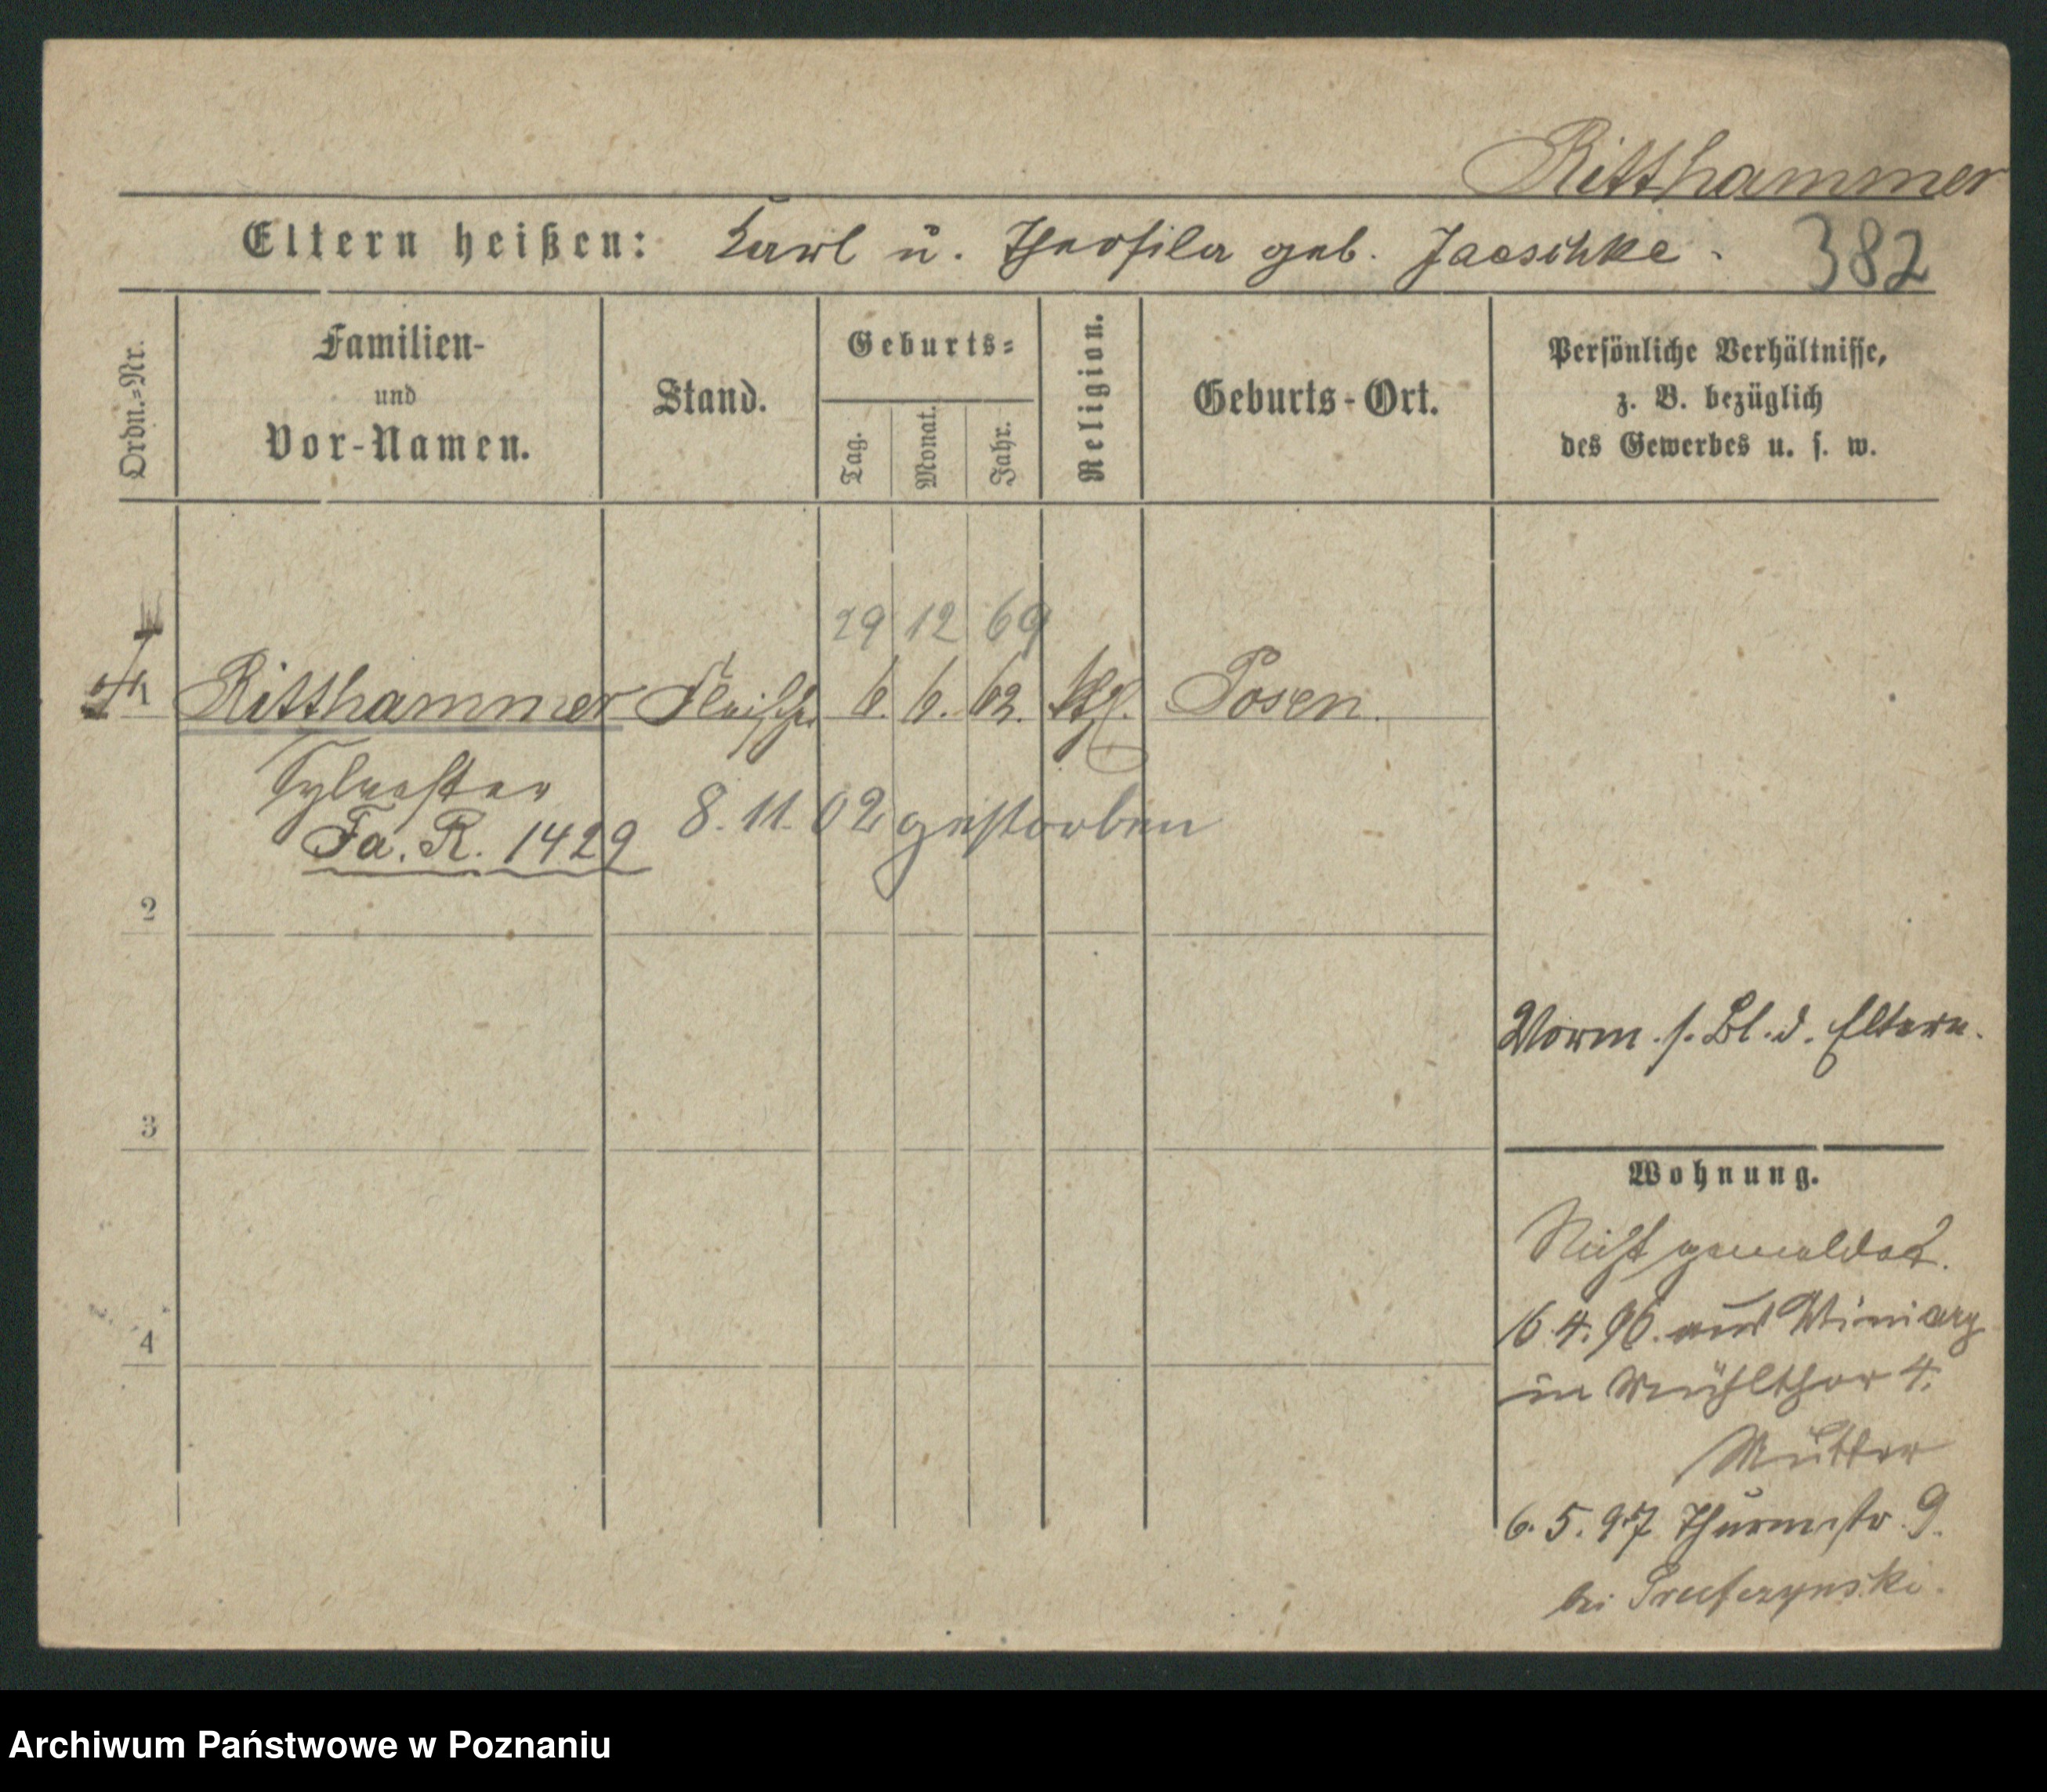 Ritthammer
Eltern heißen: Karl u. Theofila geb. Jaeschke.
382
Ordn.-Nr.
Familien-
und
Vor-Namen.
Stand.
Geburts-
Tag.
Monat.
Jahr.
Religion.
Geburts-Ort.
Persönliche Verhältnisse,
z. B. bezüglich
des Gewerbes u. s. w.
29 12 69
1 Ritthammer Fleischer 6. 6. 62. ktl. Posen.
Sylvester
Fa. R. 1429
8. 11. 02 gestorben
2
Vorm. s. Bl. d. Eltern.
3
Wohnung.
Nicht gemeldet.
4
16.4.96. aus Winiary
in Mühlthor 4.
Mutter
6. 5. 97 Thurmstr. 9.
bei
Archiwum Państwowe w Poznaniu